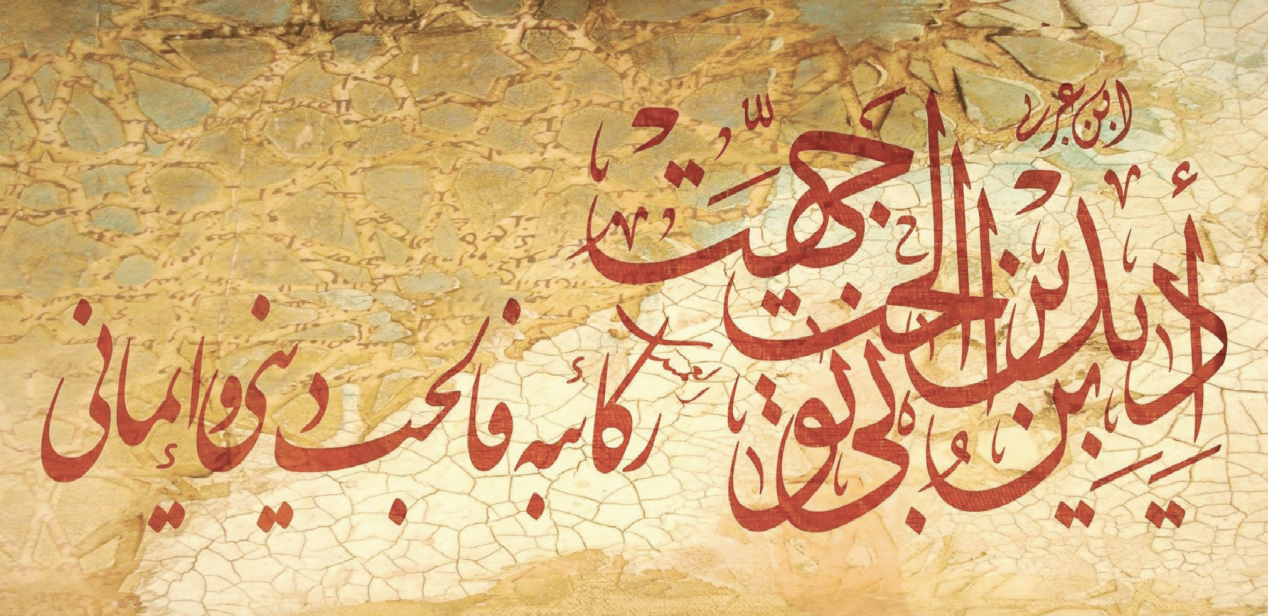 ابن عربي
أدين بدين الحب أنى توجهت
ركائبه فالحب ديني وإيماني